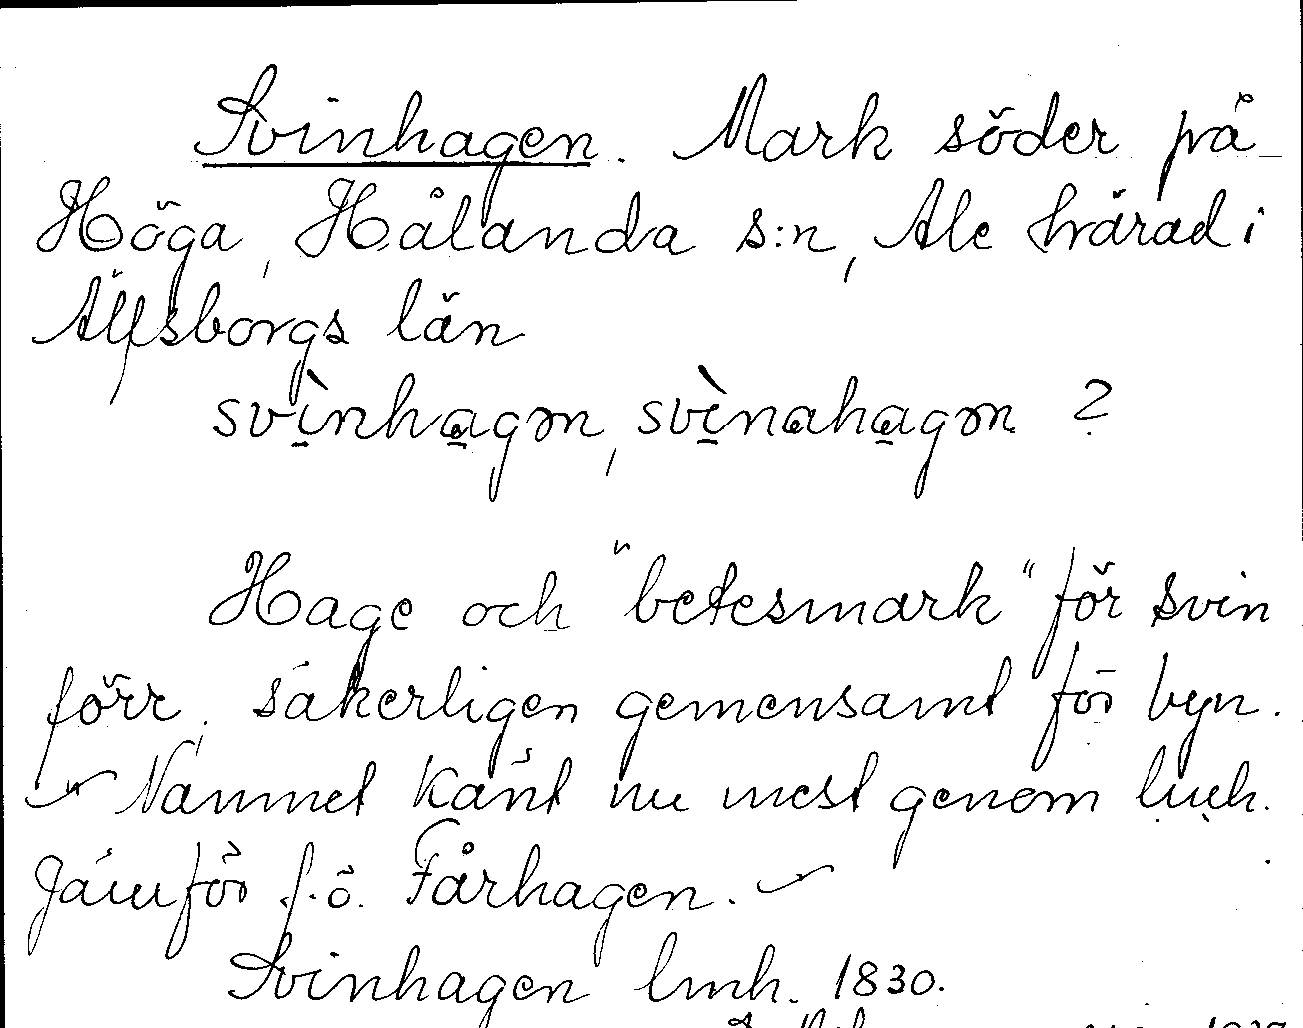 Svinhagen. Mark söder på
Höga, Hålanda s:n, Ale härad i
Älfsborgs län
svì̱nha̱gən, svì̱naha̱gən ?
Hage och "betesmark" för svin
förr, säkerligen gemensamt för byn.
Namnet känt nu mest genom lmh.
Jämför f.ö. Fårhagen.
Svinhagen lmh. 1830.